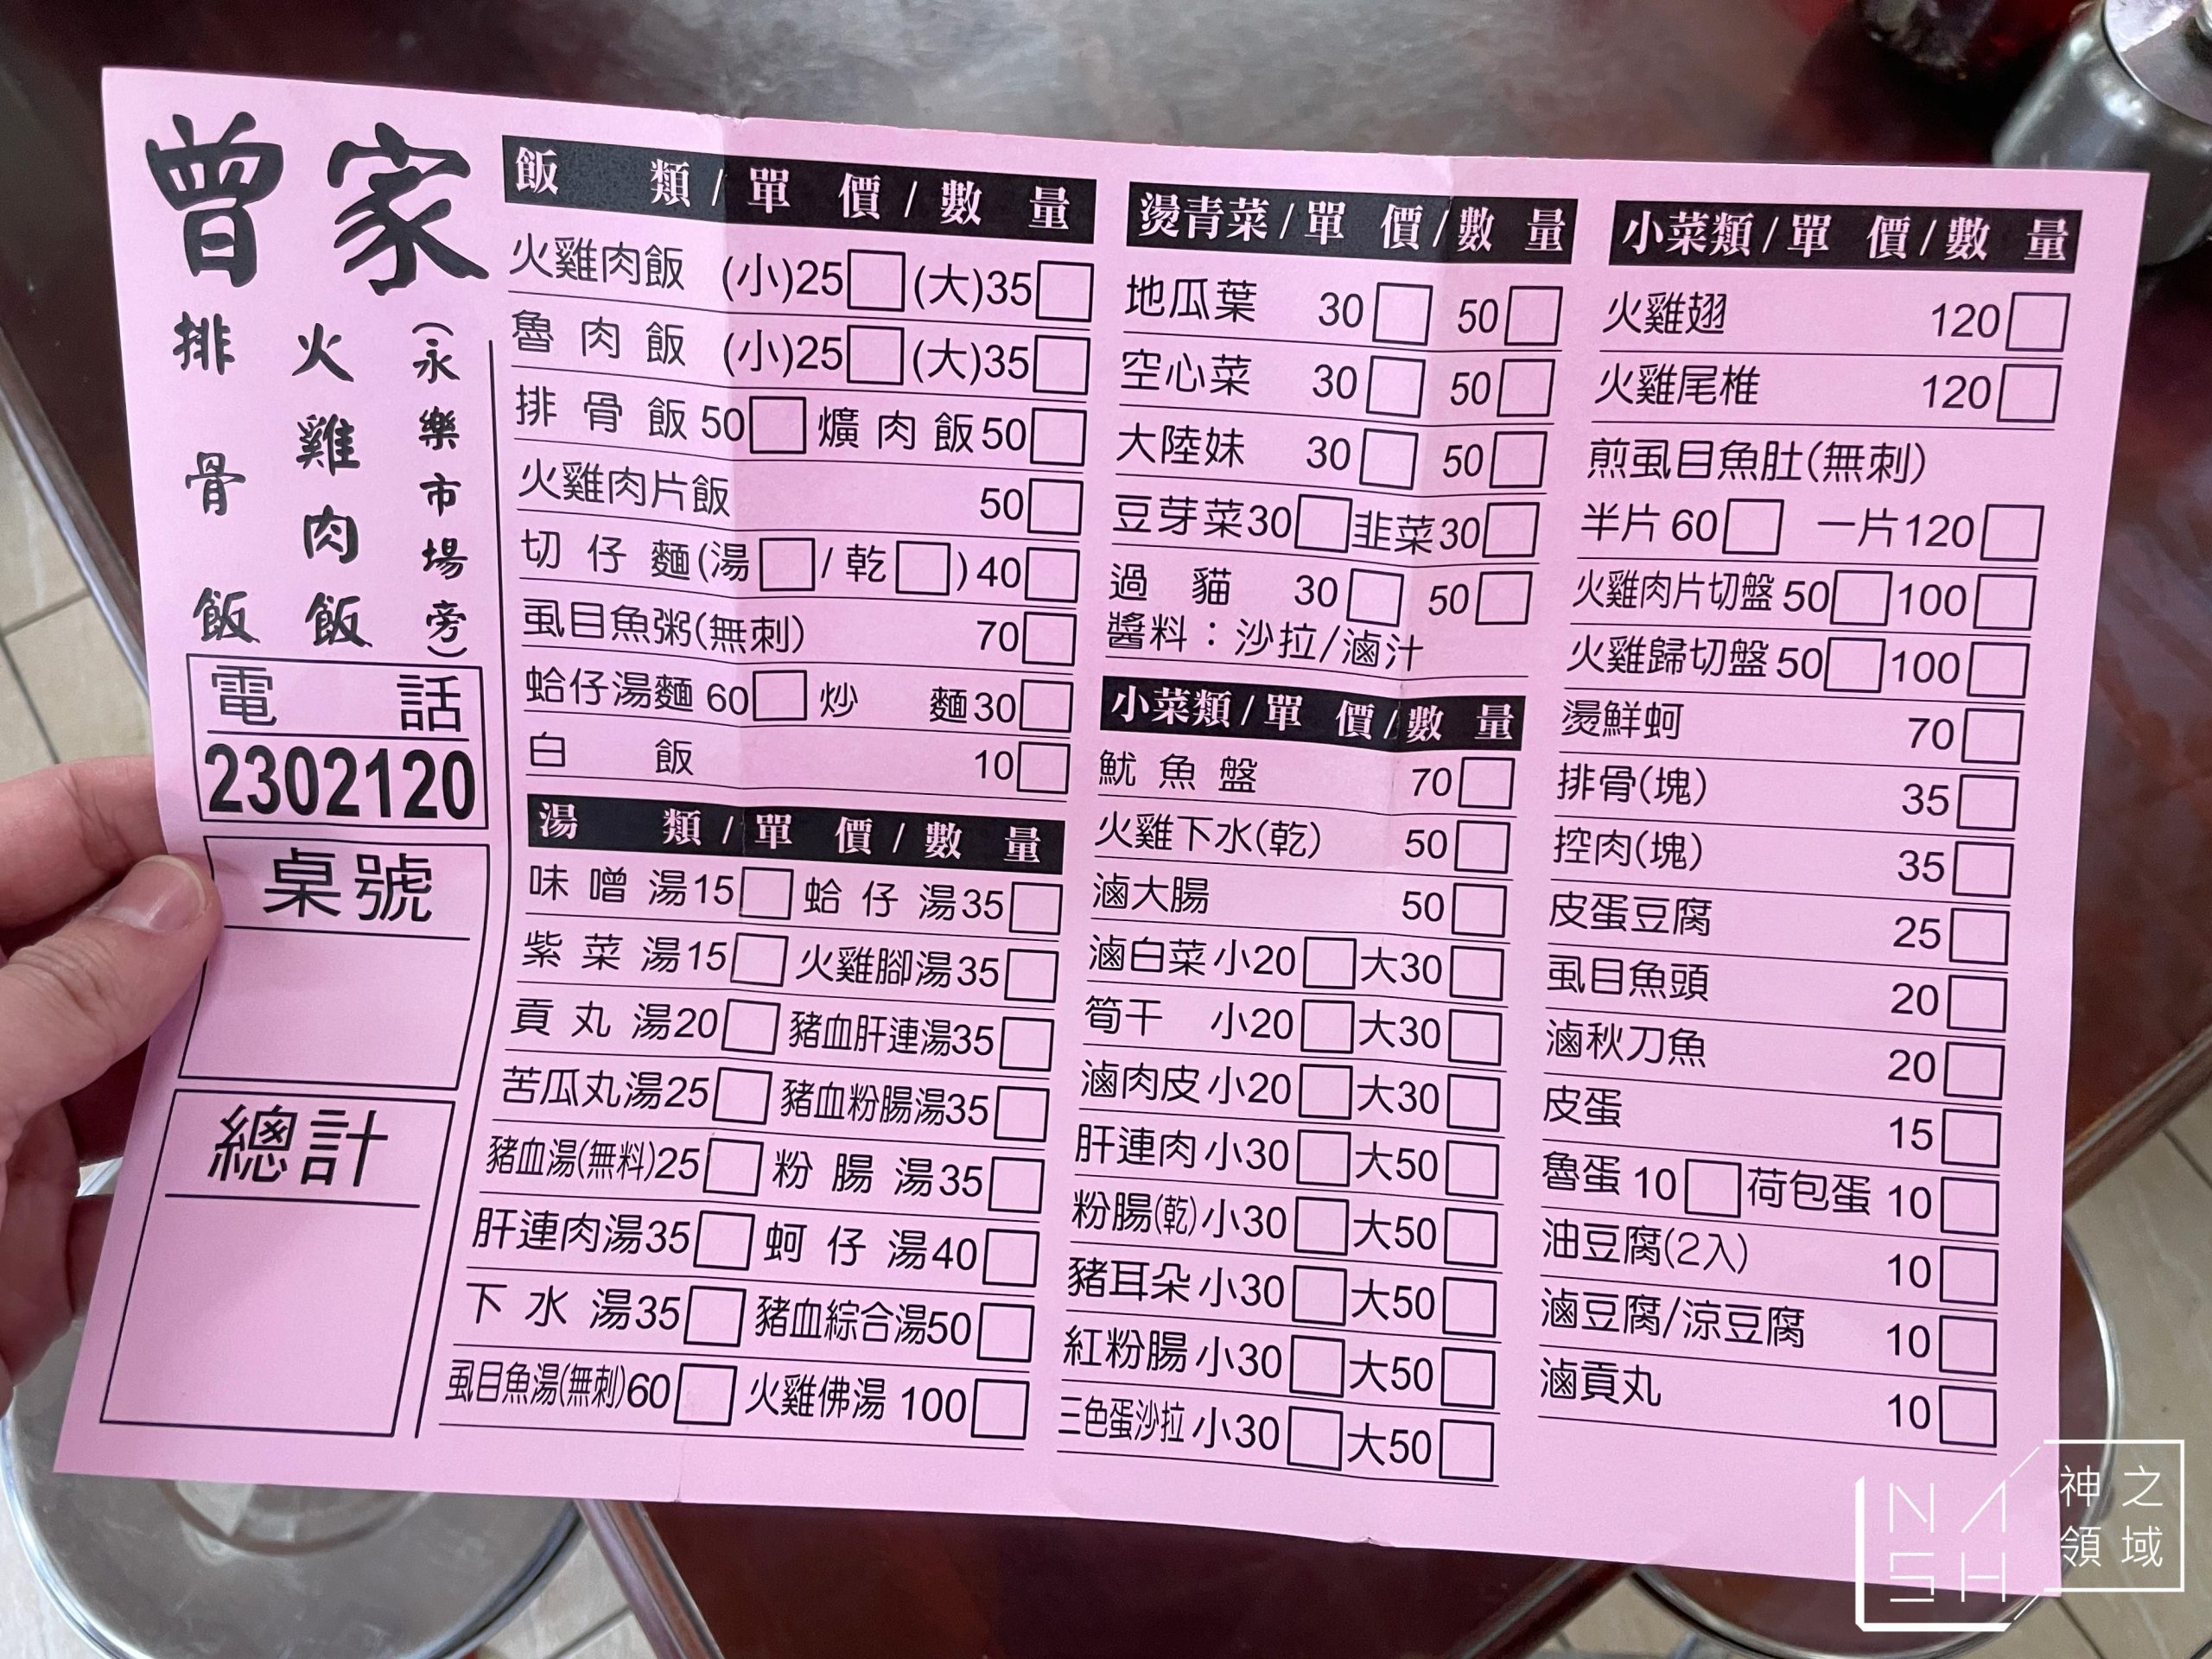 曾家
排骨飯
火雞肉飯
(永樂市場旁)
電話
2302120
桌號
總計
飯類/單價/數量
火雞肉飯 (小)25 (大)35
魯肉飯 (小)25 (大)35
排骨飯50 爌肉飯50
火雞肉片飯 50
切仔麵(湯 / 乾 )40
虱目魚粥(無刺) 70
蛤仔湯麵 60 炒麵30
白飯 10
湯類/單價/數量
味噌湯15 蛤仔湯35
紫菜湯15 火雞腳湯35
貢丸湯20 豬血肝連湯35
苦瓜丸湯25 豬血粉腸湯35
豬血湯(無料)25 粉腸湯35
肝連肉湯35 蚵仔湯40
下水湯35 豬血綜合湯50
虱目魚湯(無刺)60 火雞佛湯 100
燙青菜/單價/數量
地瓜葉 30 50
空心菜 30 50
大陸妹 30 50
豆芽菜30 韭菜30
過貓 30 50
醬料：沙拉/滷汁
小菜類/單價/數量
魷魚盤 70
火雞下水(乾) 50
滷大腸 50
滷白菜 小20 大30
筍干 小20 大30
滷肉皮 小20 大30
肝連肉 小30 大50
粉腸(乾) 小30 大50
豬耳朵 小30 大50
紅粉腸 小30 大50
三色蛋沙拉 小30 大50
小菜類/單價/數量
火雞翅 120
火雞尾椎 120
煎虱目魚肚(無刺)
半片 60 一片120
火雞肉片切盤 50 100
火雞歸切盤 50 100
燙鮮蚵 70
排骨(塊) 35
控肉(塊) 35
皮蛋豆腐 25
虱目魚頭 20
滷秋刀魚 20
皮蛋 15
魯蛋 10 荷包蛋 10
油豆腐(2入) 10
滷豆腐/涼豆腐 10
滷貢丸 10
NASH
神之
領域